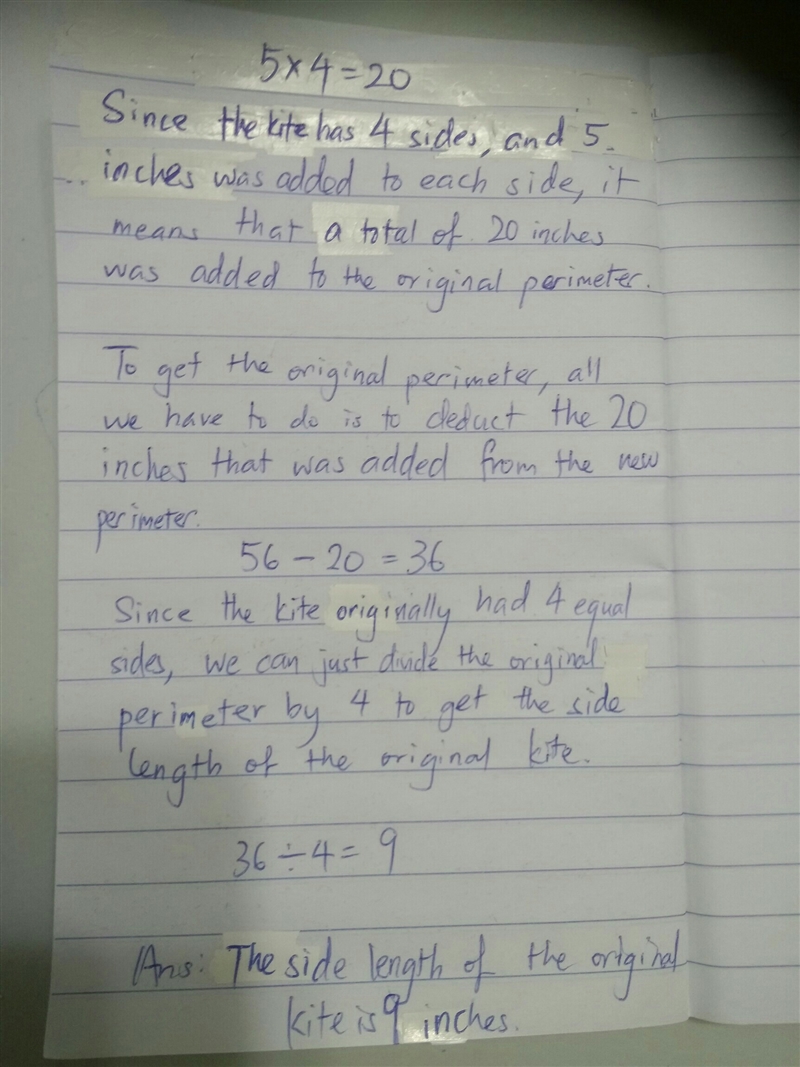 5×4=20
Since the kite has 4 sides, and 5
inches was added to each side, it
means that a total of 20 inches
was added to the original perimeter.
To get the original perimeter, all
we have to do is to deduct the 20
inches that was added from the new
perimeter.
56 - 20 = 36
Since the kite originally had 4 equal
sides, we can just divide the original
perimeter by 4 to get the side
length of the original kite.
36 ÷ 4 = 9
Ans: The side length of the original
kite is 9 inches.